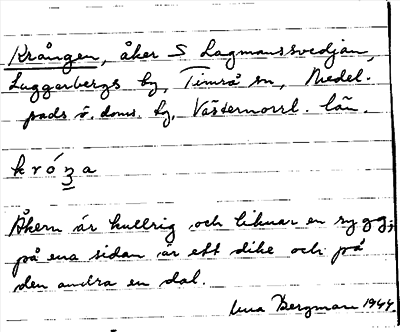 Krången, åker S Lagmanssvedjan,
Laggarbergs by, Timrå sn, Medel-
pads ö. doms. hg, Västernorrl. län.
króna
Åkern är kullrig och liknar en rygg;
på ena sidan är ett dike och på
den andra en dal.
Bergman 1944